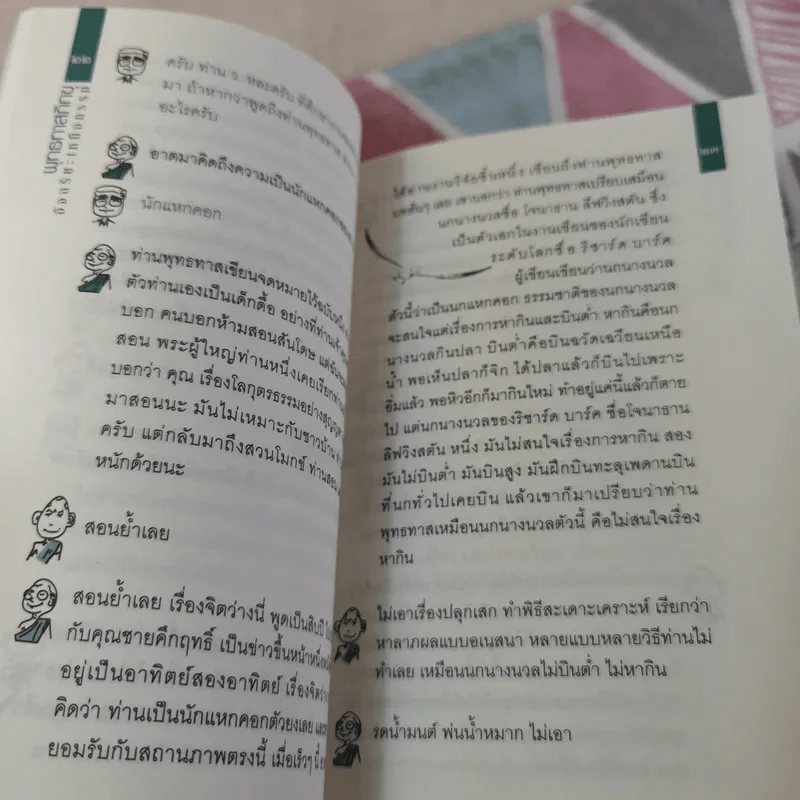 ๒๒
พุทธทาสภิกขุ
อัจฉริยะเหนืออรหันต์
ครับ ท่าน ว. หละครับ ที่ศึกษางาน
มา ถ้าหากว่าพูดถึงท่านพุทธทาส
อะไรครับ
อาตมาคิดถึงความเป็นนักแหกคอก
นักแหกคอก
ท่านพุทธทาสเขียนจดหมายไว้ฉบับหนึ่ง
ตัวท่านเองเป็นเด็กดื้อ อย่างที่ท่านเจ้า
บอก คนบอกห้ามสอนสันโดษ แต่ฉัน
สอน พระผู้ใหญ่ท่านหนึ่งเคยเรียกท่าน
บอกว่า คุณ เรื่องโลกุตรธรรมอย่างสุญญตา
มาสอนนะ มันไม่เหมาะกับชาวบ้าน
ครับ แต่กลับมาถึงสวนโมกข์ ท่านสอน
หนักด้วยนะ
สอนย้ำเลย
สอนย้ำเลย เรื่องจิตว่างนี่ พูดเป็นสิบปี
กับคุณชายคึกฤทธิ์ เป็นข่าวขึ้นหน้าหนึ่ง
อยู่เป็นอาทิตย์สองอาทิตย์ เรื่องจิตว่าง
คิดว่า ท่านเป็นนักแหกคอกตัวยงเลย และ
ยอมรับกับสถานภาพตรงนี้ เมื่อเร็วๆ นี้
๒๓
ได้อ่านงานวิจัยชิ้นหนึ่ง เขียนถึงท่านพุทธทาส
บทต้นๆ เลย เขาบอกว่า ท่านพุทธทาสเปรียบเสมือน
นกนางนวลชื่อ โจนาธาน ลีฟวิงสตัน ซึ่ง
เป็นตัวเอกในงานเขียนของนักเขียน
ระดับโลกชื่อ ริชาร์ด บาร์ค
ผู้เขียนเขียนว่านกนางนวล
ตัวนี้ว่าเป็นนกแหกคอก ธรรมชาติของนกนางนวล
จะสนใจแต่เรื่องการหากินและบินต่ำ หากินคือนก
นางนวลกินปลา บินต่ำคือบินฉวัดเฉวียนเหนือ
น้ำ พอเห็นปลาก็จิก ได้ปลาแล้วก็บินไปเพราะ
อิ่มแล้ว พอหิวอีกก็มากินใหม่ ทำอยู่แค่นี้แล้วก็ตาย
ไป แต่นกนางนวลของริชาร์ด บาร์ค ชื่อโจนาธาน
ลิฟวิงสตัน หนึ่ง มันไม่สนใจเรื่องการหากิน สอง
มันไม่บินต่ำ มันบินสูง มันฝึกบินทะลุเพดานบิน
ที่นกทั่วไปเคยบิน แล้วเขาก็มาเปรียบว่าท่าน
พุทธทาสเหมือนนกนางนวลตัวนี้ คือไม่สนใจเรื่อง
หากิน
ไม่เอาเรื่องปลุกเสก ทำพิธีสะเดาะเคราะห์ เรียกว่า
หาลาภผลแบบอเนสนา หลายแบบหลายวิธีท่านไม่
ทำเลย เหมือนนกนางนวลไม่บินต่ำ ไม่หากิน
รดน้ำมนต์ พ่นน้ำหมาก ไม่เอา